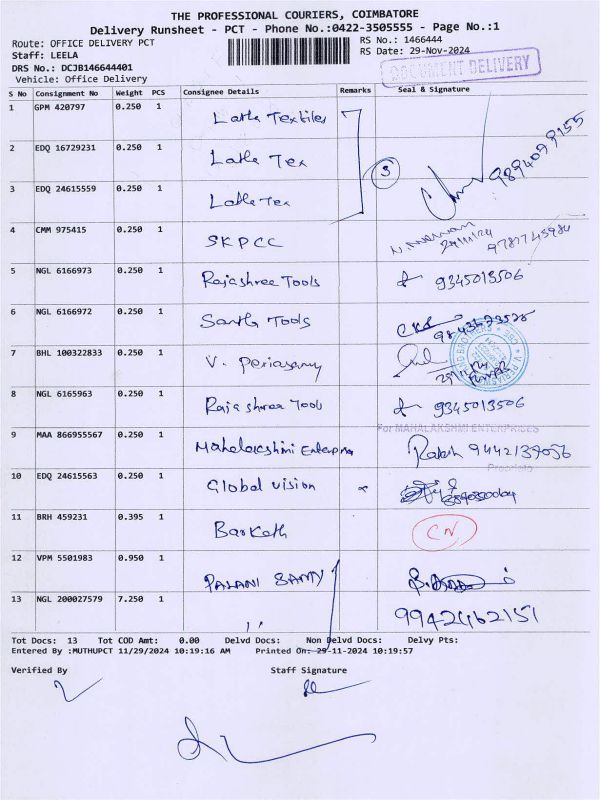 THE PROFESSIONAL COURIERS, COIMBATORE
Delivery Runsheet - PCT - Phone No.:0422-3505555 - Page No.:1
Route: OFFICE DELIVERY PCT
RS No.: 1466444
Staff: LEELA
RS Date: 29-Nov-2024
DRS No.: DCJB146644401
DOCUMENT DELIVERY
Vehicle: Office Delivery
S No Consignment No Weight PCS Consignee Details Remarks Seal & Signature
1 GPM 420797 0.250 1 Latha Textiles
2 EDQ 16729231 0.250 1 Latha Tex 3 9894099155
3 EDQ 24615559 0.250 1 Latha Tex
4 CMM 975415 0.250 1 SKPCC 29/11/24 9787743984
5 NGL 6166973 0.250 1 Rajashree Tools 9345013506
6 NGL 6166972 0.250 1 Santh Tools
7 BHL 100322833 0.250 1 V. Periasamy
8 NGL 6165963 0.250 1 Rajashree Tools 9345013506
For MAHALAKSHMI ENTERPRISES
9 MAA 866955567 0.250 1 Mahalakshmi Enterprises 9442137056
10 EDQ 24615563 0.250 1 Global vision
11 BRH 459231 0.395 1 Barkath CN
12 VPM 5501983 0.950 1 PALANI SAMY
13 NGL 200027579 7.250 1 ,, 9942462151
Tot Docs: 13 Tot COD Amt: 0.00 Delvd Docs: Non Delvd Docs: Delvy Pts:
Entered By :MUTHUPCT 11/29/2024 10:19:16 AM Printed On: 29-11-2024 10:19:57
Verified By Staff Signature